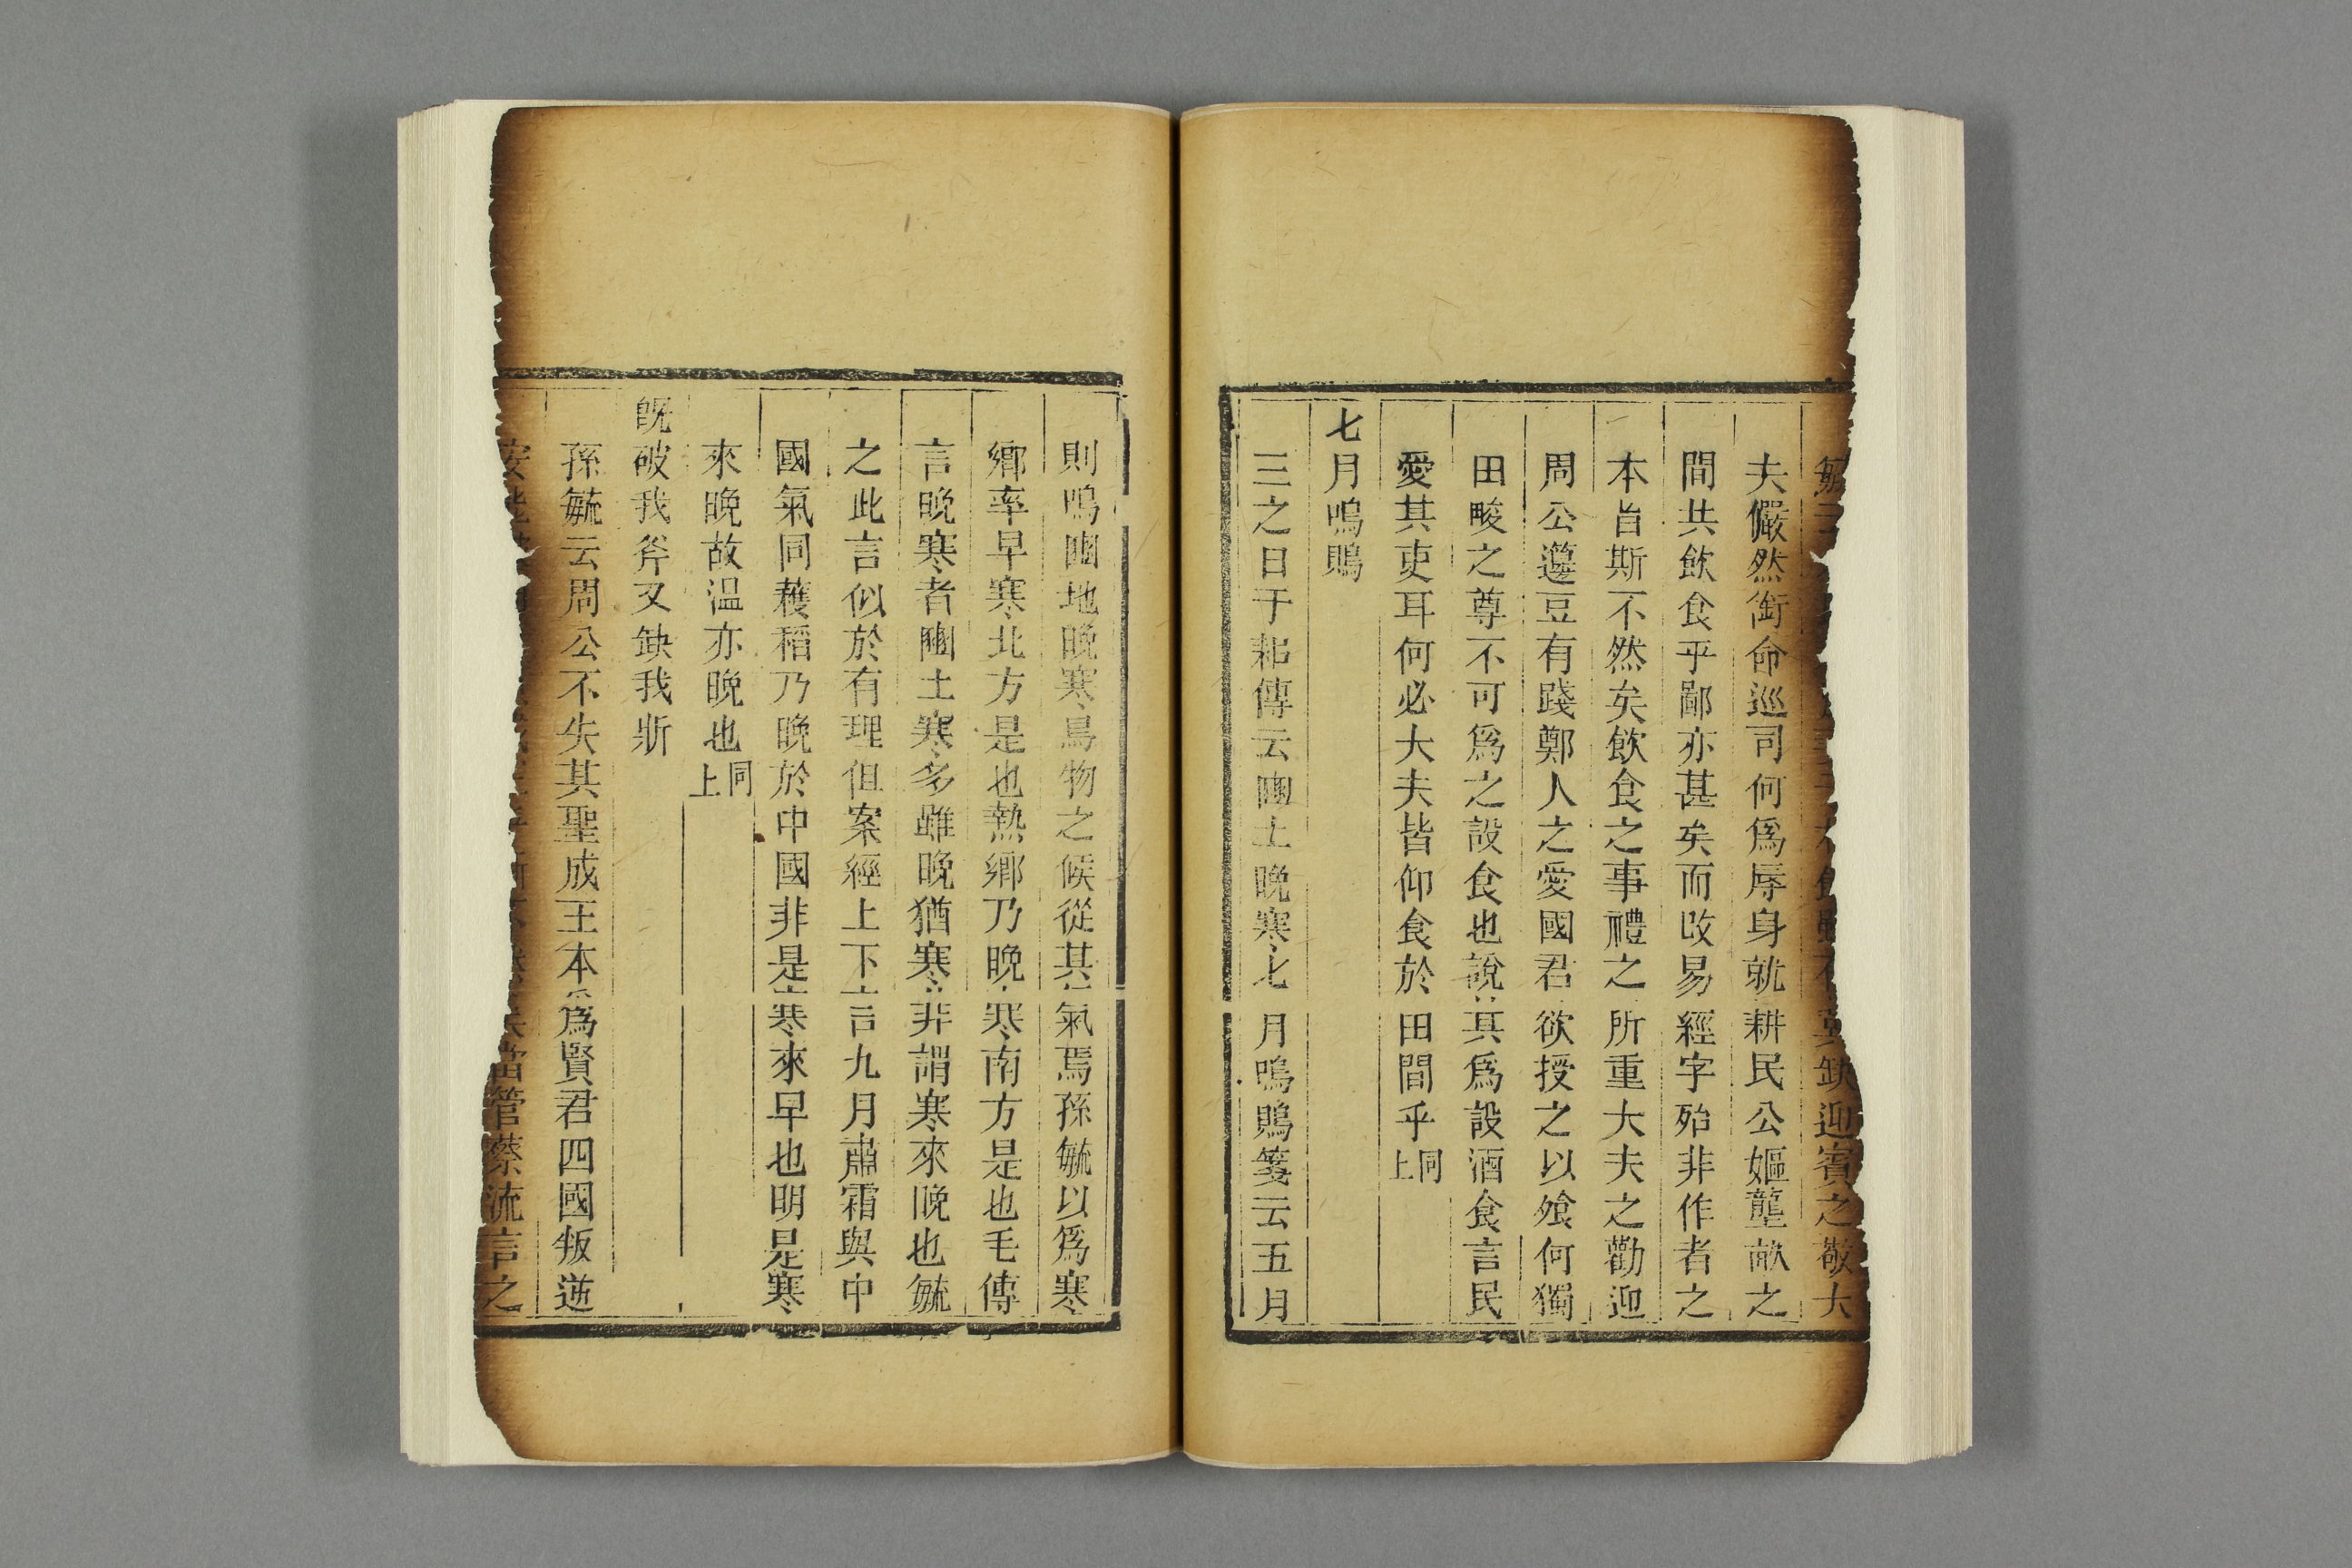 缺迎賓之敬大
夫儼然銜命巡司何爲辱身就耕民公嫗壟畝之
間共飲食乎鄙亦甚矣而改易經字殆非作者之
本旨斯不然矣飲食之事禮之所重大夫之勸迎
周公籩豆有踐鄭人之愛國君欲授之以飧何獨
田畯之尊不可爲之設食也說其爲設酒食言民
愛其吏耳何必大夫皆仰食於田間乎同上
七月鳴鵙
三之日于耜傳云豳土晚寒七月鳴鵙箋云五月
則鳴豳地晚寒鳥物之候從其氣焉孫毓以爲寒
鄉率早寒北方是也熱鄉乃晚寒南方是也毛傳
言晚寒者豳土寒多雖晚猶寒非謂寒來晚也毓
之此言似於有理但案經上下言九月肅霜與中
國氣同穫稻乃晚於中國非是寒來早也明是寒
來晚故温亦晚也同上
旣破我斧又缺我斨
孫毓云周公不失其聖成王本爲賢君四國叛逆
管蔡流言之